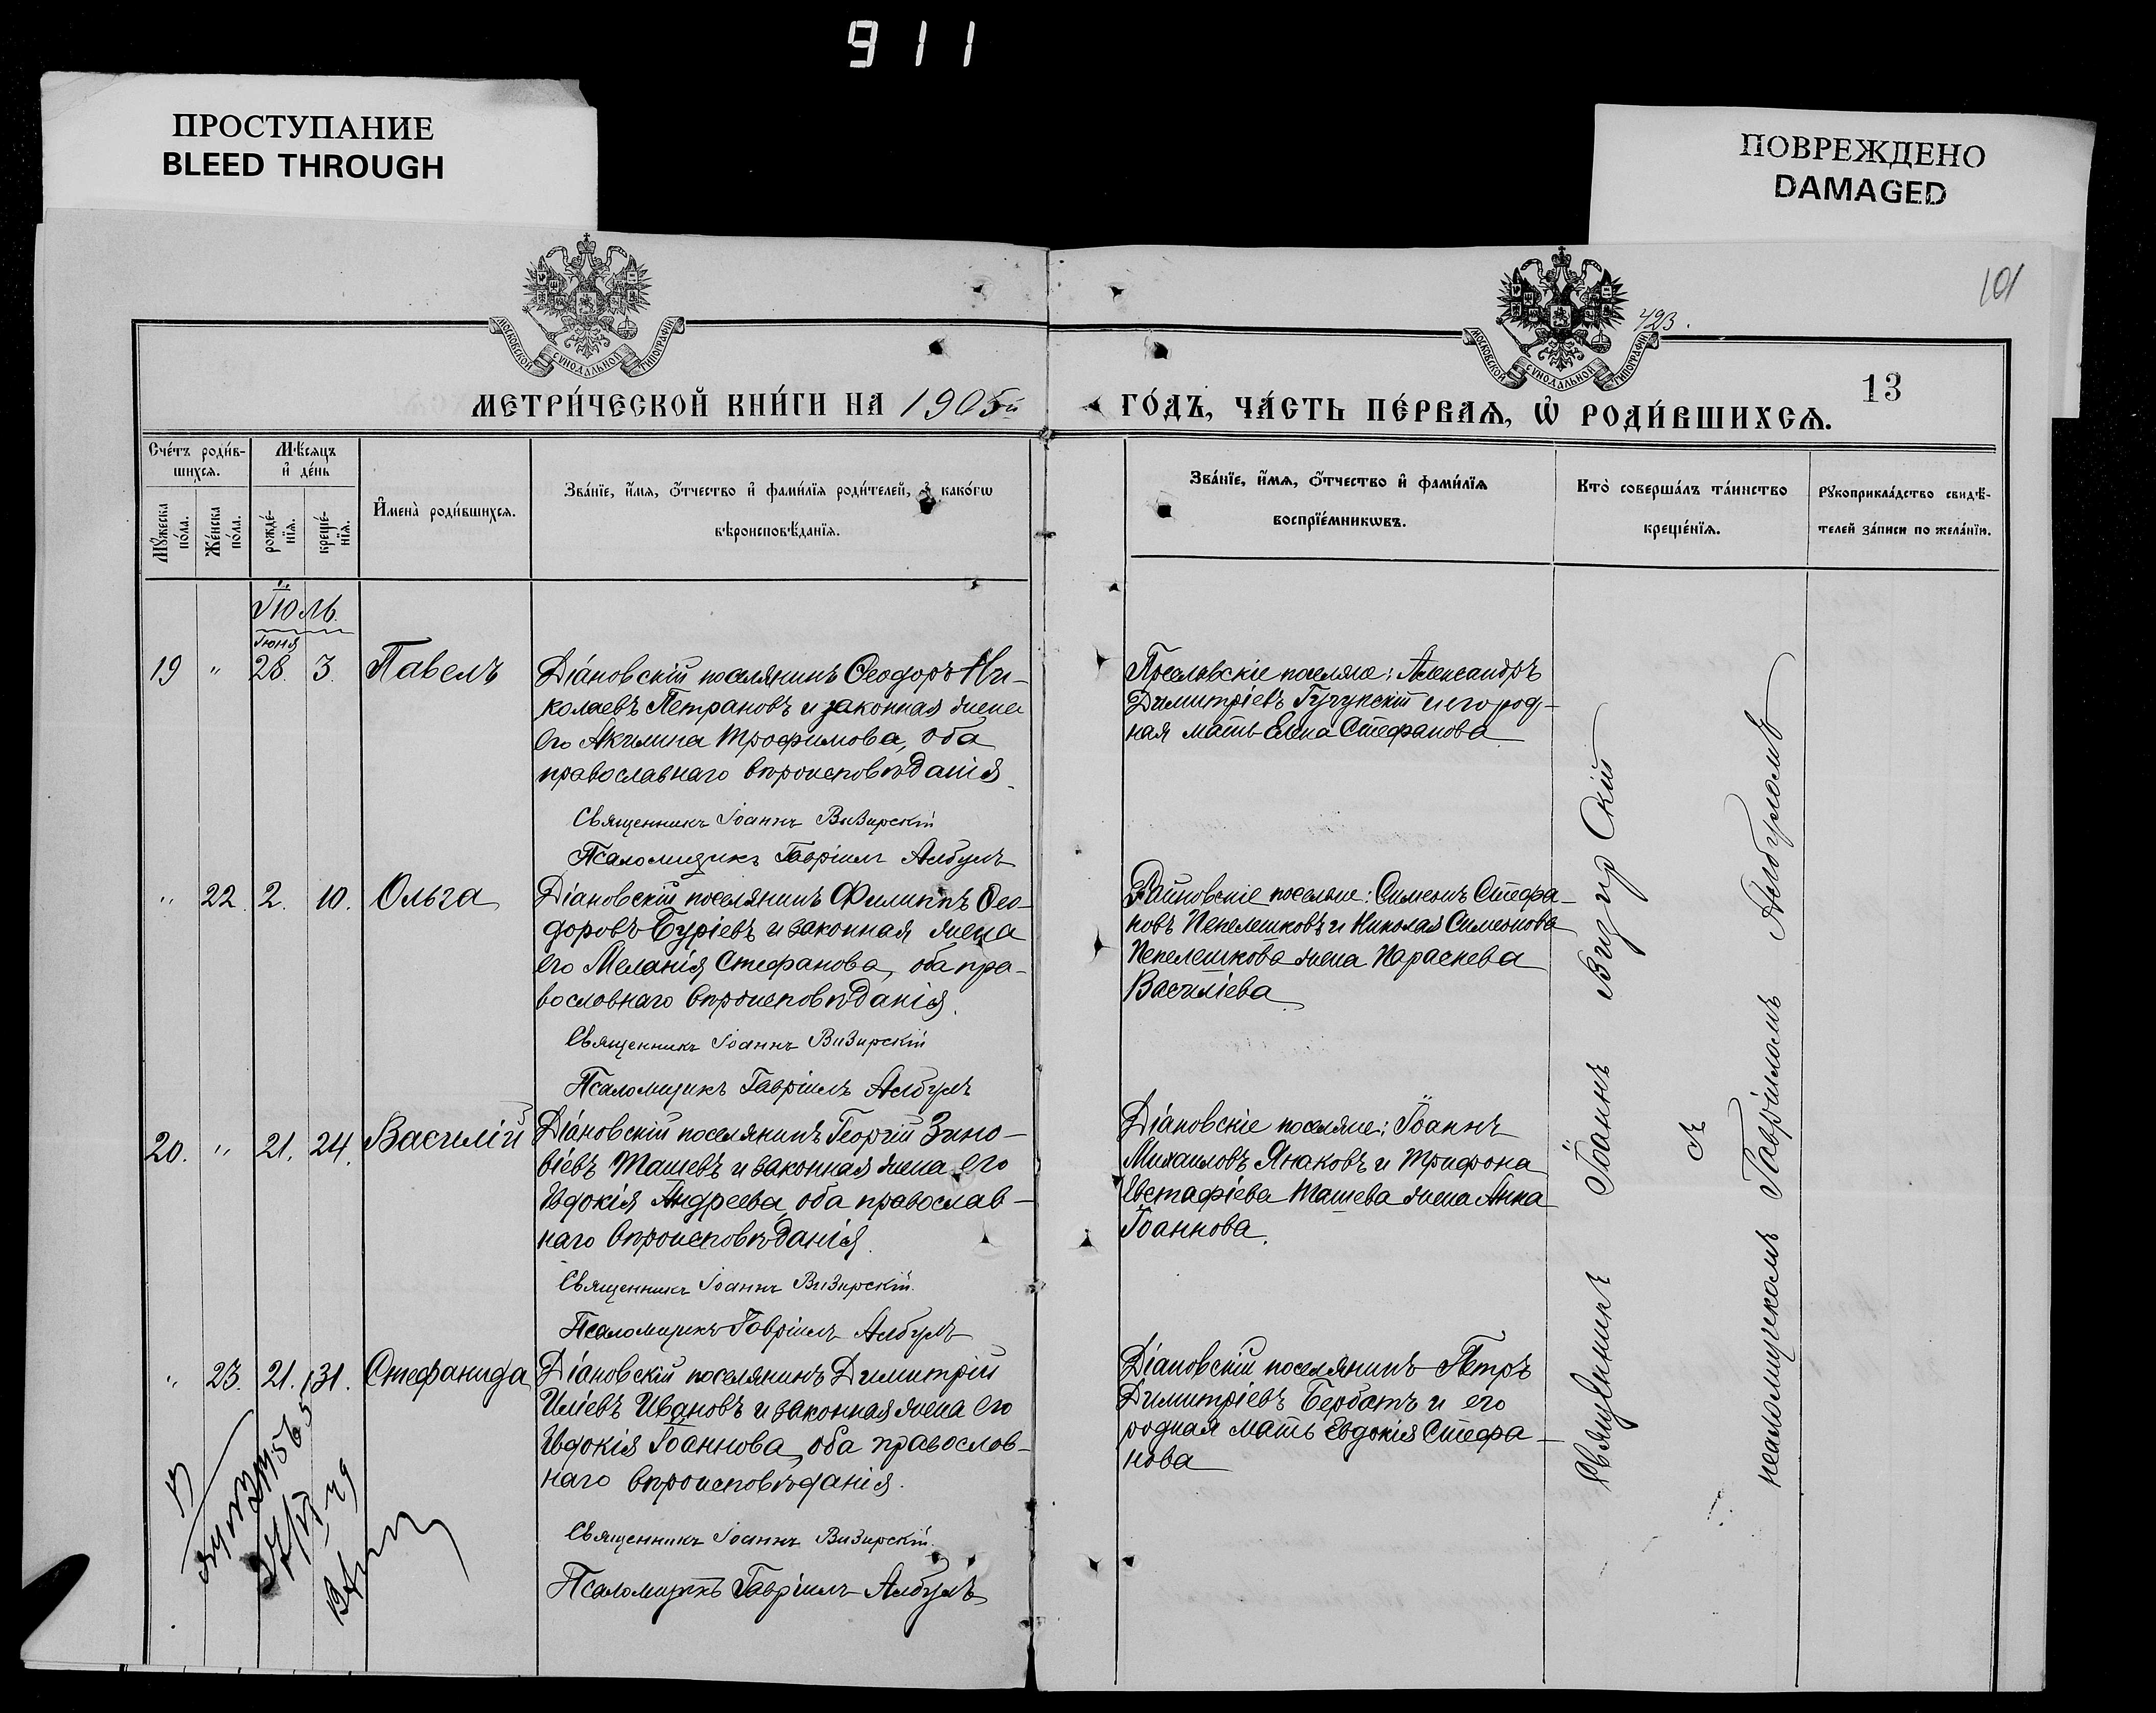 911
ПРОСТУПАНИЕ
BLEED THROUGH
ПОВРЕЖДЕНО
DAMAGED
101
423.
13
МОСКОВСКОЙ СѴНОДАЛЬНОЙ ТИПОГРАФІИ
МОСКОВСКОЙ СѴНОДАЛЬНОЙ ТИПОГРАФІИ
МЕТРИ́ЧЕСКОЙ КНИ́ГИ НА 1905й
ГО́ДЪ, ЧА́СТЬ ПЕ́РВАѦ, Ѡ҆ РОДИ́ВШИХСѦ.
Сче́тъ роди́в-
шихсѧ.
Мѣ́сѧцъ
и҆ де́нь
Мꙋ́жеска
по́ла.
Же́нска
по́ла.
рожде́-
нїѧ.
креще́-
нїѧ.
И҆мена̀ роди́вшихсѧ.
Зва́нїе, и҆́мѧ, ѻ҆́тчество и҆ фами́лїѧ роди́телей, и҆ како́гѡ
вѣроисповѣ́данїѧ.
Зва́нїе, и҆́мѧ, ѻ҆́тчество и҆ фами́лїѧ
воспрїе́мникѡвъ.
Кто̀ соверша́лъ та́инство
креще́нїѧ.
Рꙋкоприкла́дство свидѣ́-
телей за́писи по жела́нїю.
Іюль.
Іюня
19 " 28. 3. Павелъ
Діановскій поселянинъ Ѳеодоръ Ни-
колаевъ Петрановъ и законная жена
его Акилина Трофимова, оба
православнаго вѣроисповѣданія.
Священникъ Іоаннъ Визирскій
Псаломщикъ Гавріилъ Албулъ
поселяне: Александръ
Димитріевъ и его род-
ная мать Елена Стефанова
" 22. 2. 10. Ольга
Діановскій поселянинъ Филиппъ Ѳео-
доровъ Буріевъ и законная жена
его Меланія Стефанова, оба пра-
вославнаго вѣроисповѣданія.
Священникъ Іоаннъ Визирскій
Псаломщикъ Гавріилъ Албулъ
поселяне: Симеонъ Стефа-
новъ Пепелешковъ и Николая Симеонова
Пепелешкова жена Параскева
Василіева
20. " 21. 24. Василій
Діановскій поселянинъ Георгій Зино-
віевъ Ташевъ и законная жена его
Евдокія Андреева, оба православ-
наго вѣроисповѣданія.
Священникъ Іоаннъ Визирскій.
Псаломщикъ Гавріилъ Албулъ
Діановскіе поселяне: Іоаннъ
Михаиловъ Янаковъ и Трифона
Евстафіева Ташева жена Анна
Іоаннова.
" 23. 21. 31. Стефанида
Діановскій поселянинъ Димитрій
Иліевъ Ивановъ и законная жена его
Евдокія Іоаннова, оба православ-
наго вѣроисповѣданія.
Священникъ Іоаннъ Визирскій.
Псаломщикъ Гавріилъ Албулъ
Діановскій поселянинъ Петръ
Димитріевъ Бербатъ и его
родная мать Евдокія Стефа-
нова
Священникъ Іоаннъ Визирскій
съ
псаломщикомъ Гавріиломъ Албуломъ